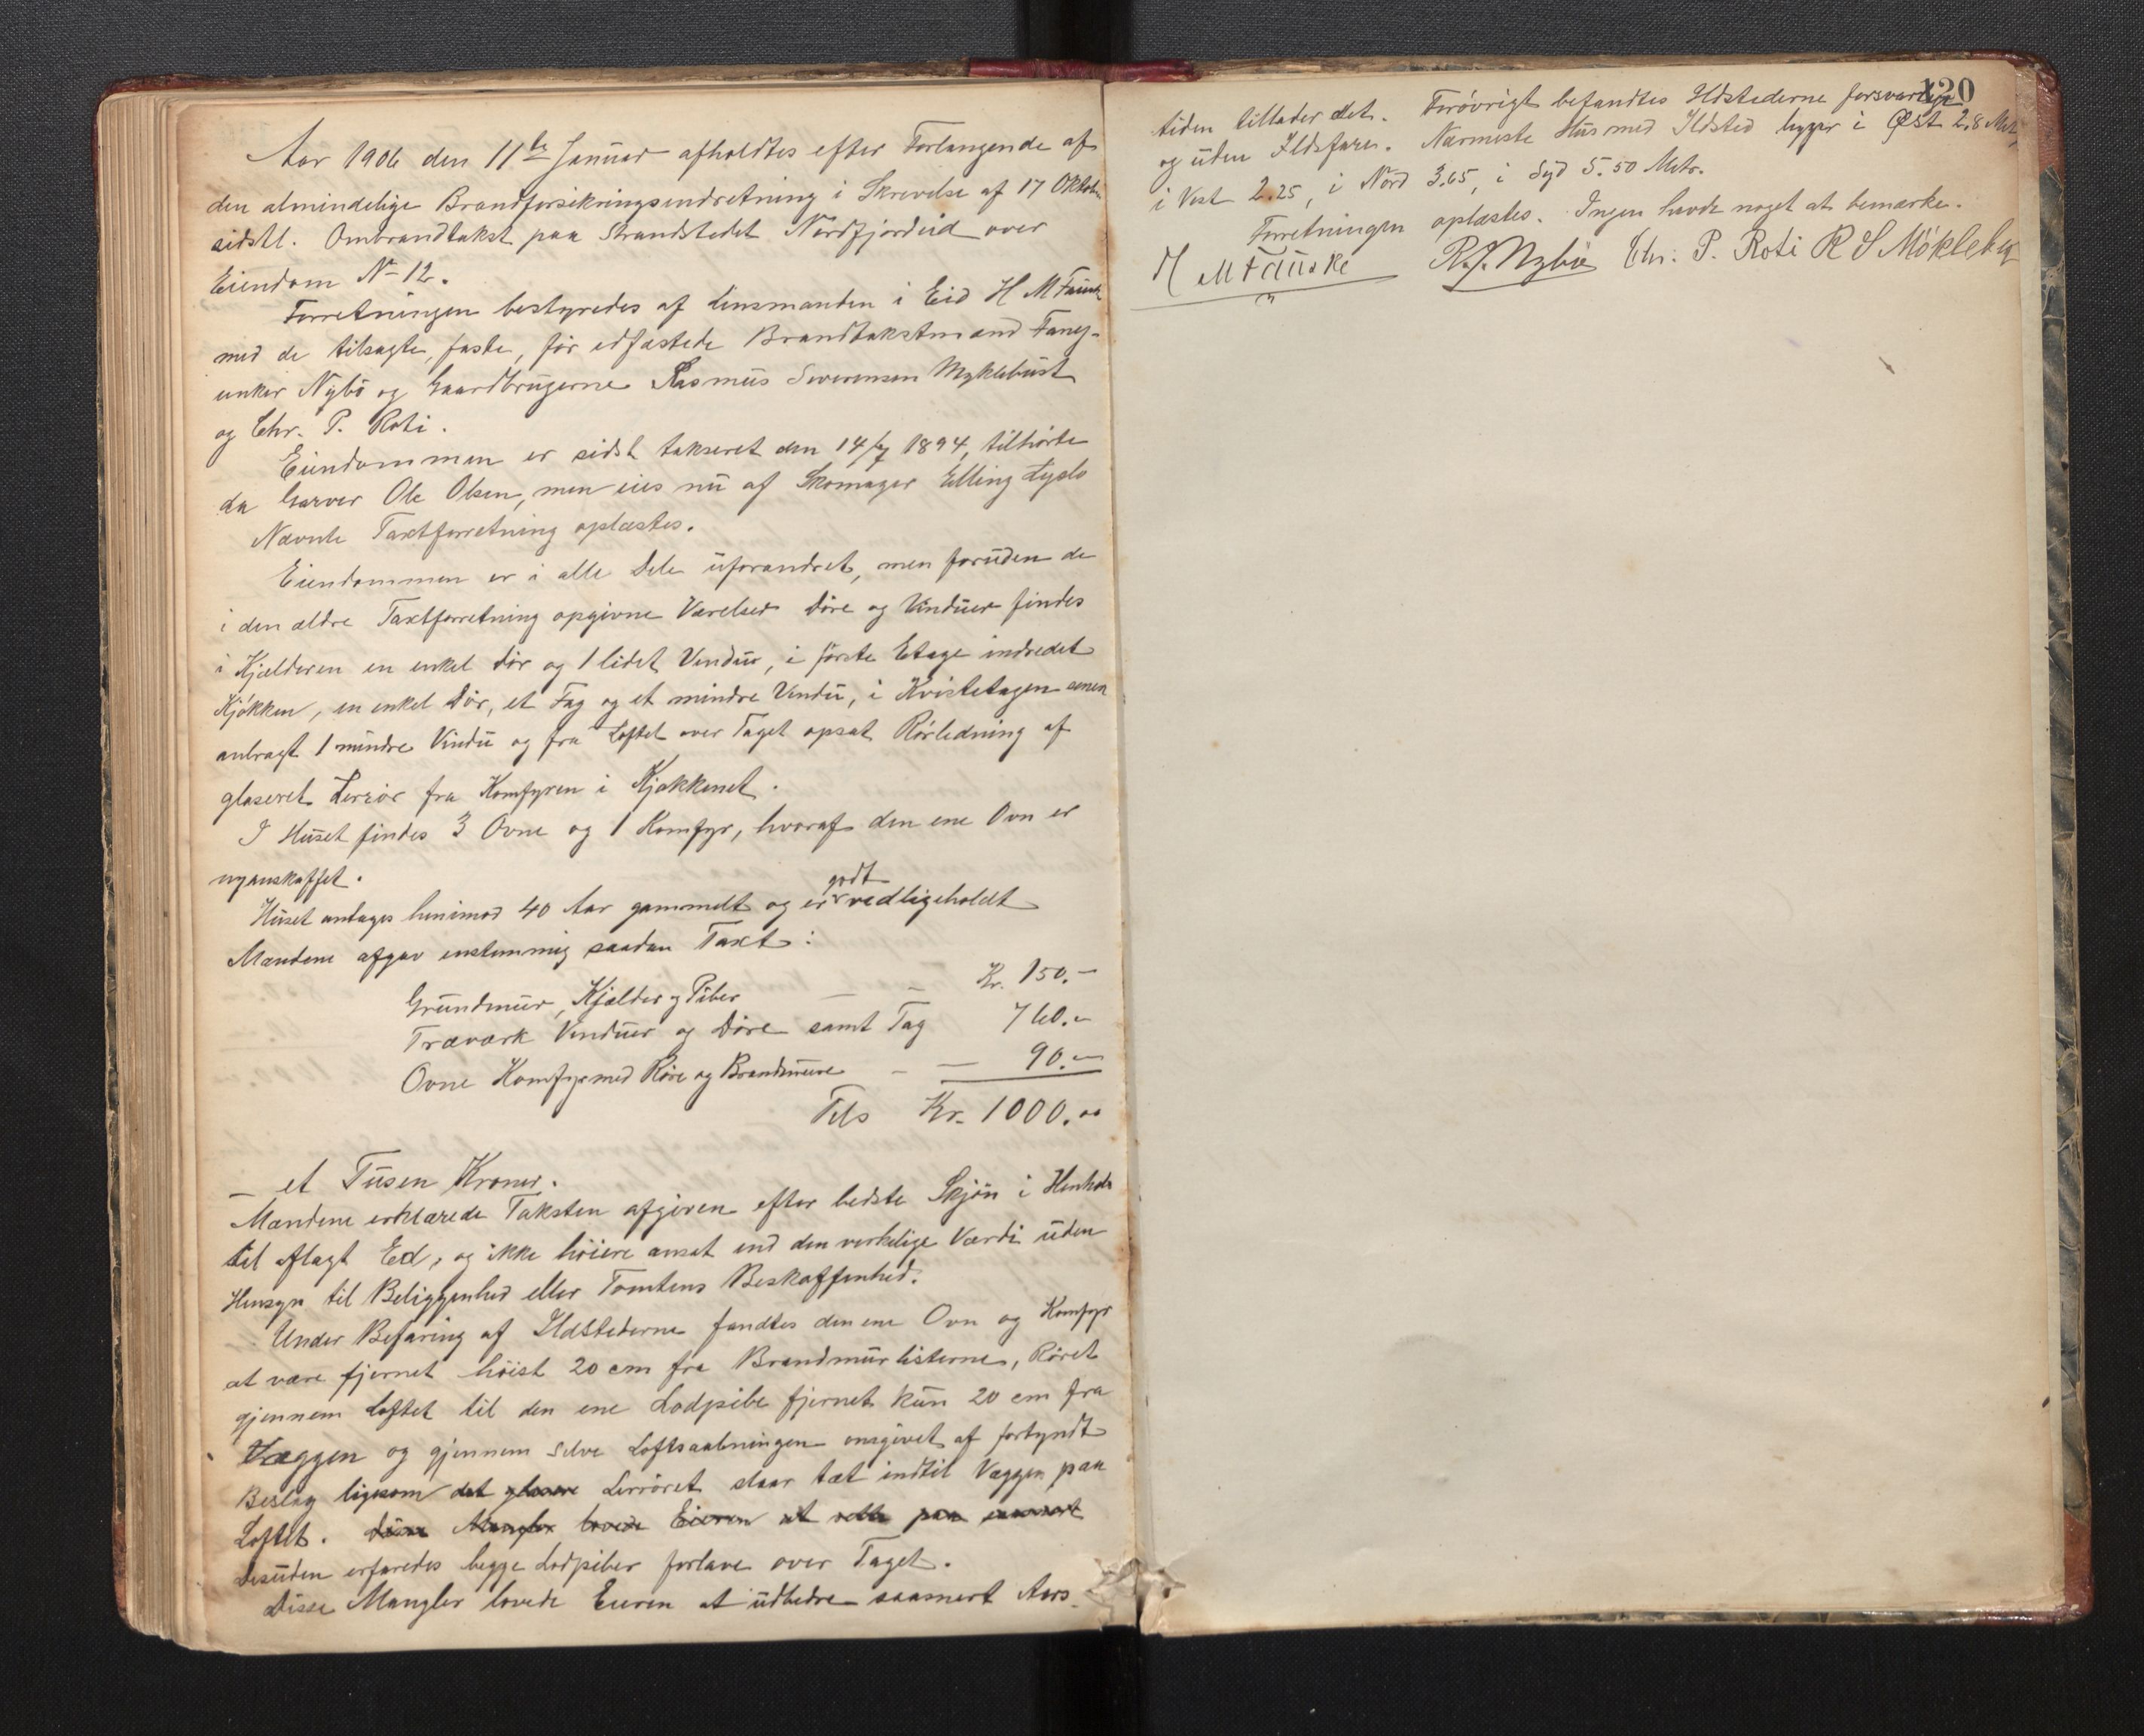 Aar 1906 den 11te Januar afholdtes efter Forlangende af
den almindelige Brandforsikringsindretning i Skrevelse af 17 Oktober
sidstl. Ombrandtakst paa Strandstedet Nordfjordeid over
Eiendom No 12.
Forretningen bestyredes af Linsmanden i Eid H M Fauske
med de tilsagte, faste, før edfæstede Brandtakstmænd Fanej-
unker Nybø og Gaardbrugerne Rasmus Severensen Myklebust
og Chr. P. Roti.
Eiendommen er sidst takseret den 14/7 1894, tilhørte
da Garver Ole Olsen, men eies nu af Skomager Elling Lyslo
Nævnte Taxtforretning oplæstes.
Eiendommen er i alle Dele uforandret, men foruden de
i den ældre Taxtforretning opgivne Værelser Døre og Vinduer findes
i Kjælderen en enkel Dør og 1 lidet Vindue, i første Etage indredet
Kjøkken, en enkel Dør, et Fag og et mindre Vindu, i Kvistetagen
anbragt 1 mindre Vindu og fra Loftet over Taget opsat Rørledning af
glaseret Lerrør fra Komfyren i Kjøkkenet.
I Huset findes 3 Ovne og 1 Komfyr, hvoraf den ene Ovn er
nyanskaffet.
Huset antages henimod 40 Aar gammelt og er godt vedligeholdt
Mændene afgav enstemmig saadan Taxt:
Grundmur, Kjælder og Piber — - Kr. 150.-
Træværk Vinduer og Døre samt Tag 760.-
Ovne Komfyr med Røre og Brandmure - — 90.-
Tils Kr. 1000.00
— et Tusen Kroner.
Mændene erklærede Taksten afgiven efter bedste Skjøn i Henhold
til aflagt Ed, og ikke høiere ansat end den verkelige Værdi uden
Hensyn til Beliggenhed eller Tomtens Beskaffenhed.
Under Befaring af Ildstederne fandtes den ene Ovn og Komfyr
at være fjernet høist 20 cm fra Brandmurlisterne, Røret
gjennem Loftet til den ene Lodpibe fjernet kun 20 cm fra
Væggen og gjennem selve Loftsaabningen omgivet af fortyndt
Beslag ligesom det glasere Lerrøret staar tæt indtil Væggen paa
Loftet. Disse Mangler lovede Eieren at rette paa snarest
Desuden erfaredes begge Lodpiber forlave over Taget.
Disse Mangler lovede Eieren at udbedre saasnart Aars-
120
tiden tillader det. Forøvrigt befandtes Ildstederne forsvarlige
og uden Ildsfare. Nærmeste Hus med Ildsted ligger i Øst 2.8 Met,
i Vest 2.25, i Nord 3.65, i Syd 5.50 Metr.
Forretningen oplæstes. Ingen havde noget at bemærke.
H M Fauske R. J. Nybø Chr. P. Roti R S Mökleby